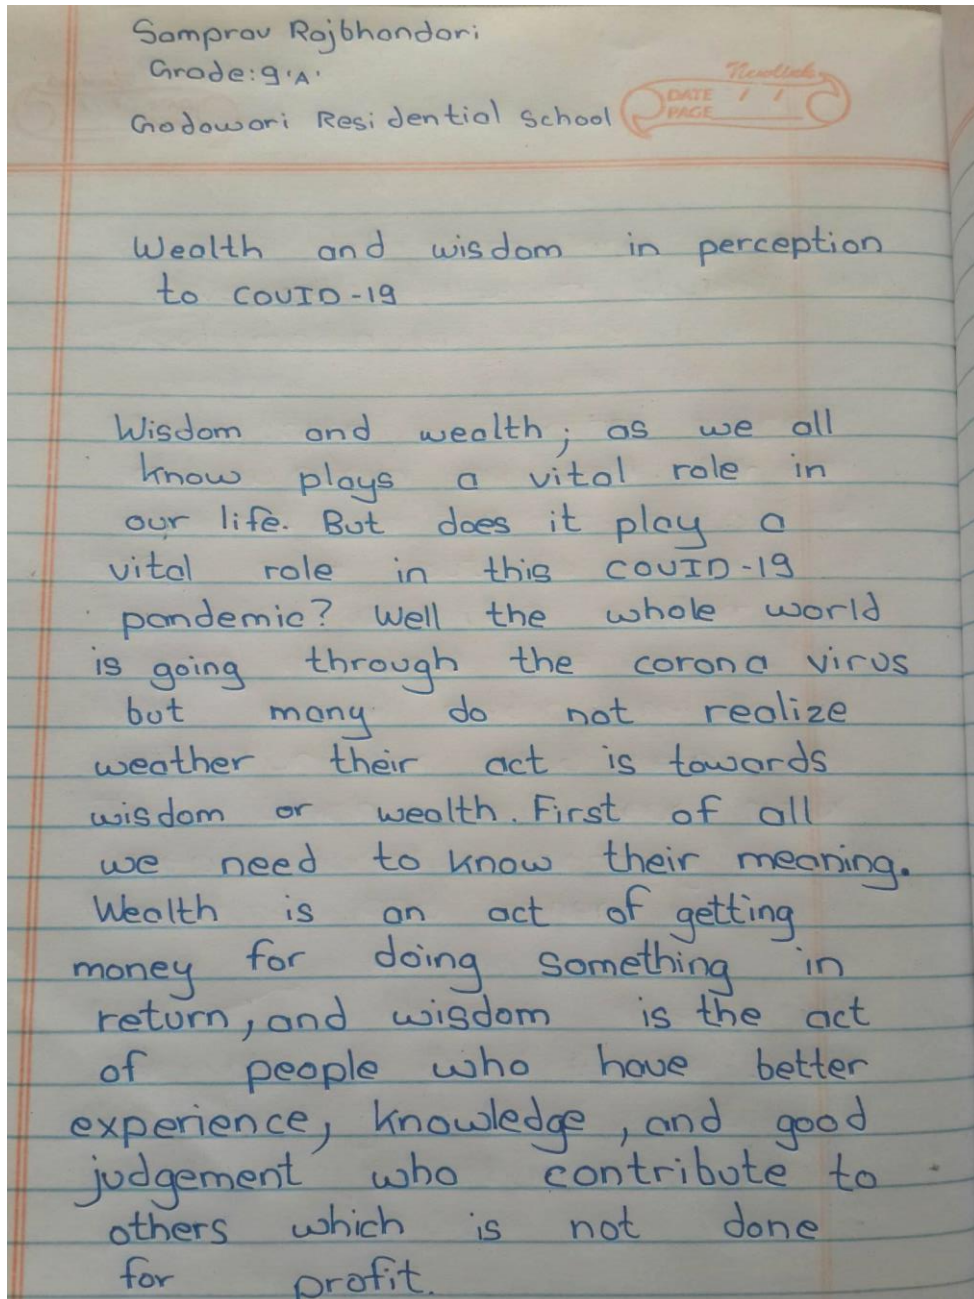 Samprav Rajbhandari
Grade: 9 'A'
Godawari Residential School
DATE / /
PAGE
Wealth and wisdom in perception
to COVID-19
Wisdom and wealth; as we all
know plays a vital role in
our life. But does it play a
vital role in this COVID-19
pandemic? Well the whole world
is going through the corona virus
but many do not realize
weather their act is towards
wisdom or wealth. First of all
we need to know their meaning.
Wealth is an act of getting
money for doing something in
return, and wisdom is the act
of people who have better
experience, knowledge, and good
judgement who contribute to
others which is not done
for profit.